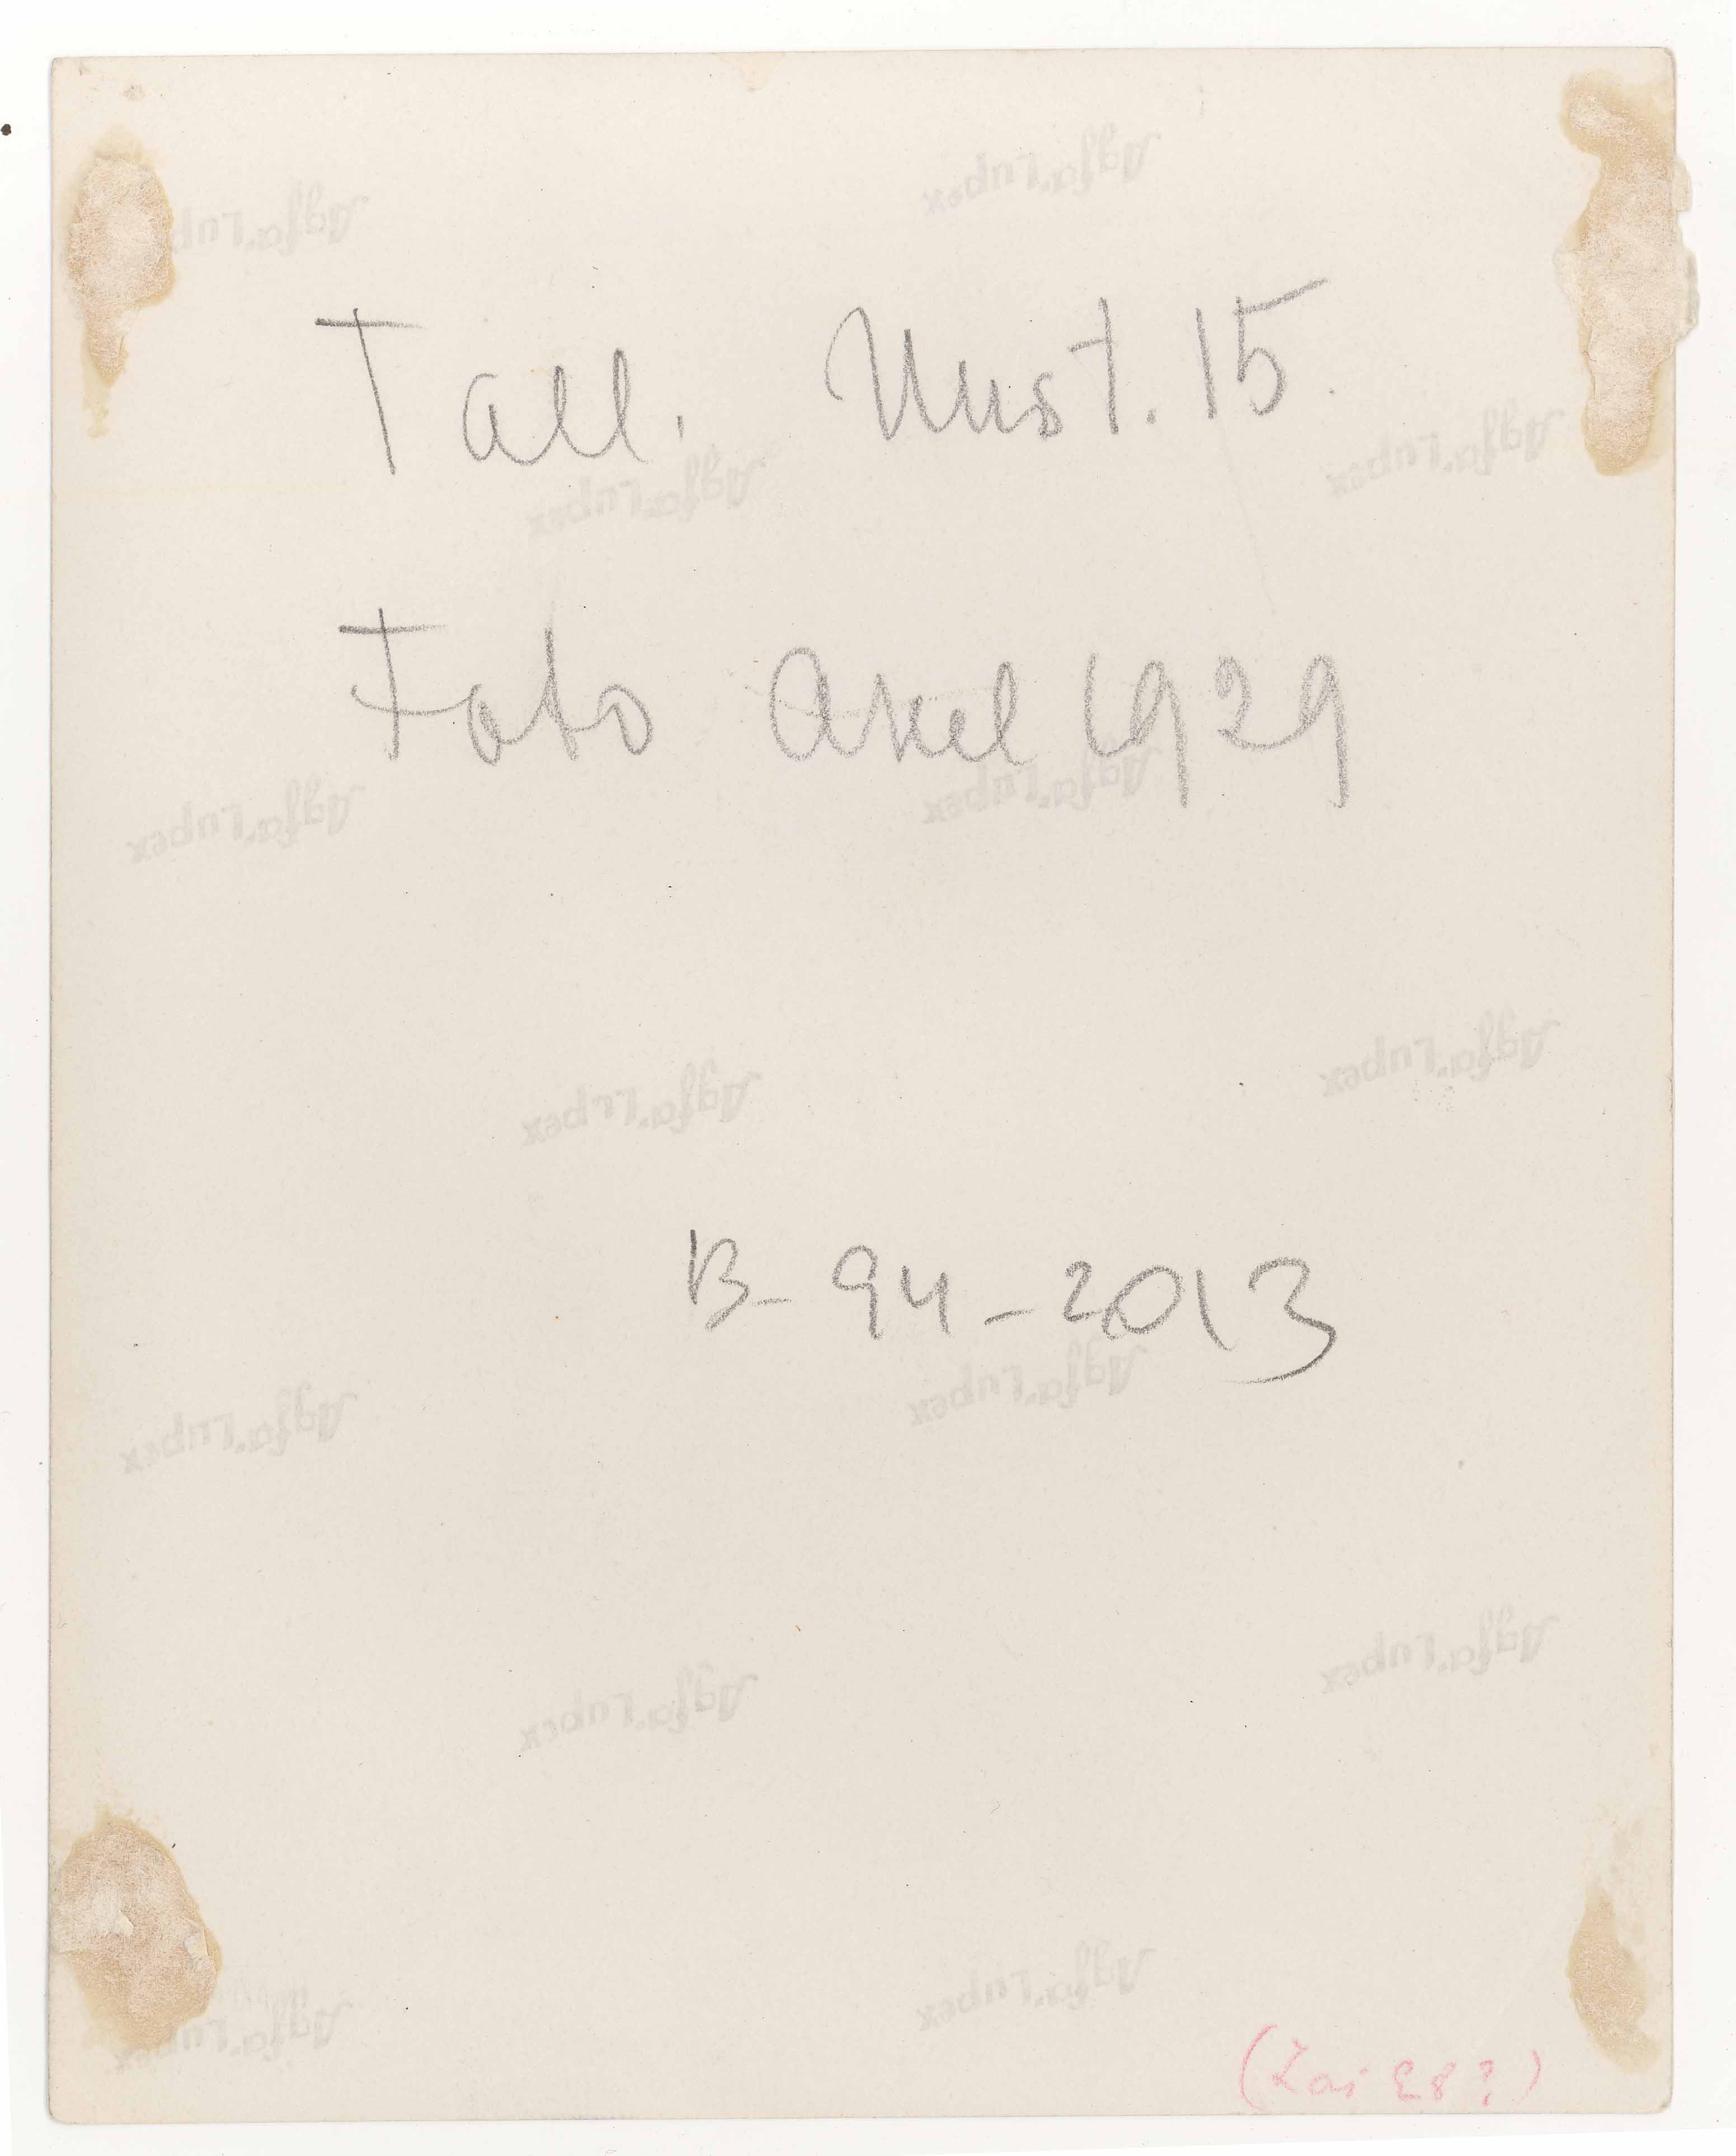 Tall. Must. 15.
Foto Axel 1929
B-94-2013
Agfa-Lupex
Agfa-Lupex
Agfa-Lupex
Agfa-Lupex
Agfa-Lupex
Agfa-Lupex
Agfa-Lupex
Agfa-Lupex
Agfa-Lupex
Agfa-Lupex
Agfa-Lupex
Agfa-Lupex
Agfa-Lupex
Agfa-Lupex